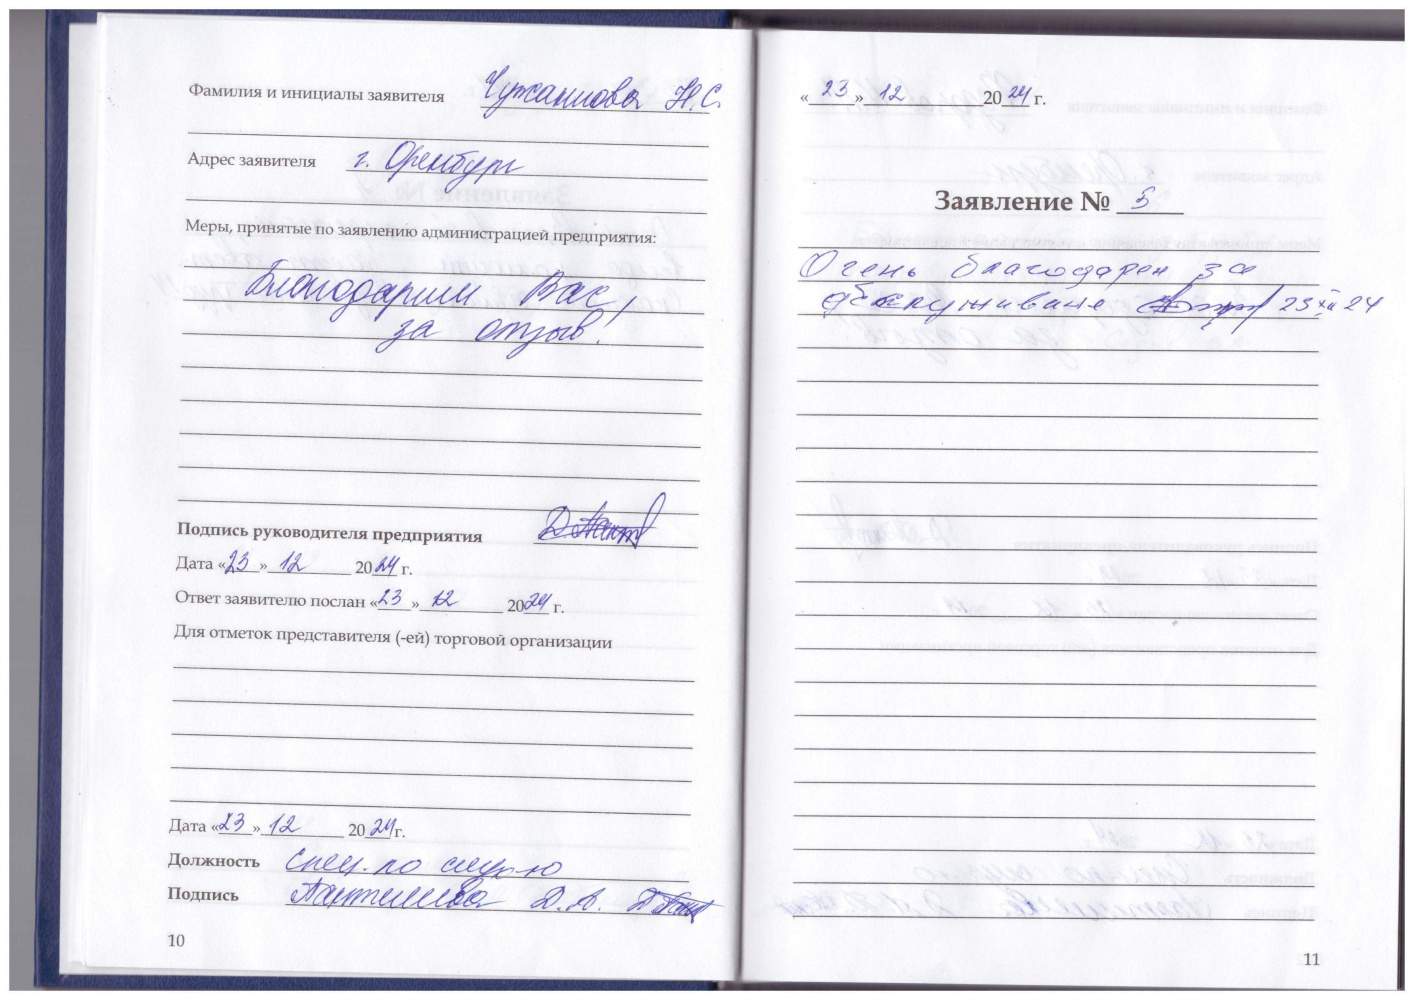 Фамилия и инициалы заявителя Чужанинова Н.С.
Адрес заявителя г. Оренбург
Меры, принятые по заявлению администрацией предприятия:
Благодарим Вас
за отзыв!
Подпись руководителя предприятия
Дата «23» 12 2024 г.
Ответ заявителю послан «23» 12 2024 г.
Для отметок представителя (-ей) торговой организации
Дата «23» 12 2024 г.
Должность Спец. по
Подпись Д.А.
10
«23» 12 2024 г.
Заявление № 5
Очень благодарен за
обслуживание 23 XII 24
11